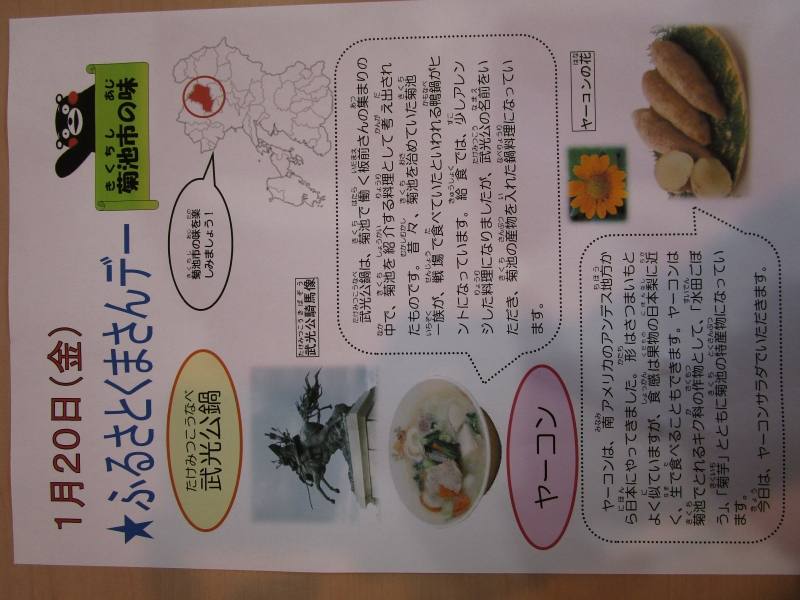 1月20日(金)
★ふるさとくまさんデー
きくちし あじ
菊池市の味
きくちし あじ たの
菊池市の味を楽
しみましょう!
たけみつこうなべ
武光公鍋
たけみつこうきばぞう
武光公騎馬像
武光公鍋は、菊池で働く板前さんの集まりの
中で、菊池を紹介する料理として考え出され
たものです。昔々、菊池を治めていた菊池
一族が、戦場で食べていたといわれる鴨鍋がヒ
ントになっています。給食では、少しアレン
ジした料理になりましたが、武光公の名前をい
ただき、菊池の産物を入れた鍋料理になってい
ます。
ヤーコン
はな
ヤーコンの花
ヤーコンは、南アメリカのアンデス地方か
ら日本にやってきました。形はさつまいもと
よく似ていますが、食感は果物の日本梨に近
く、生で食べることもできます。ヤーコンは
菊池でとれるキク科の作物として、「水田ごぼ
う」、「菊芋」とともに菊池の特産物になってい
ます。
今日は、ヤーコンサラダでいただきます。